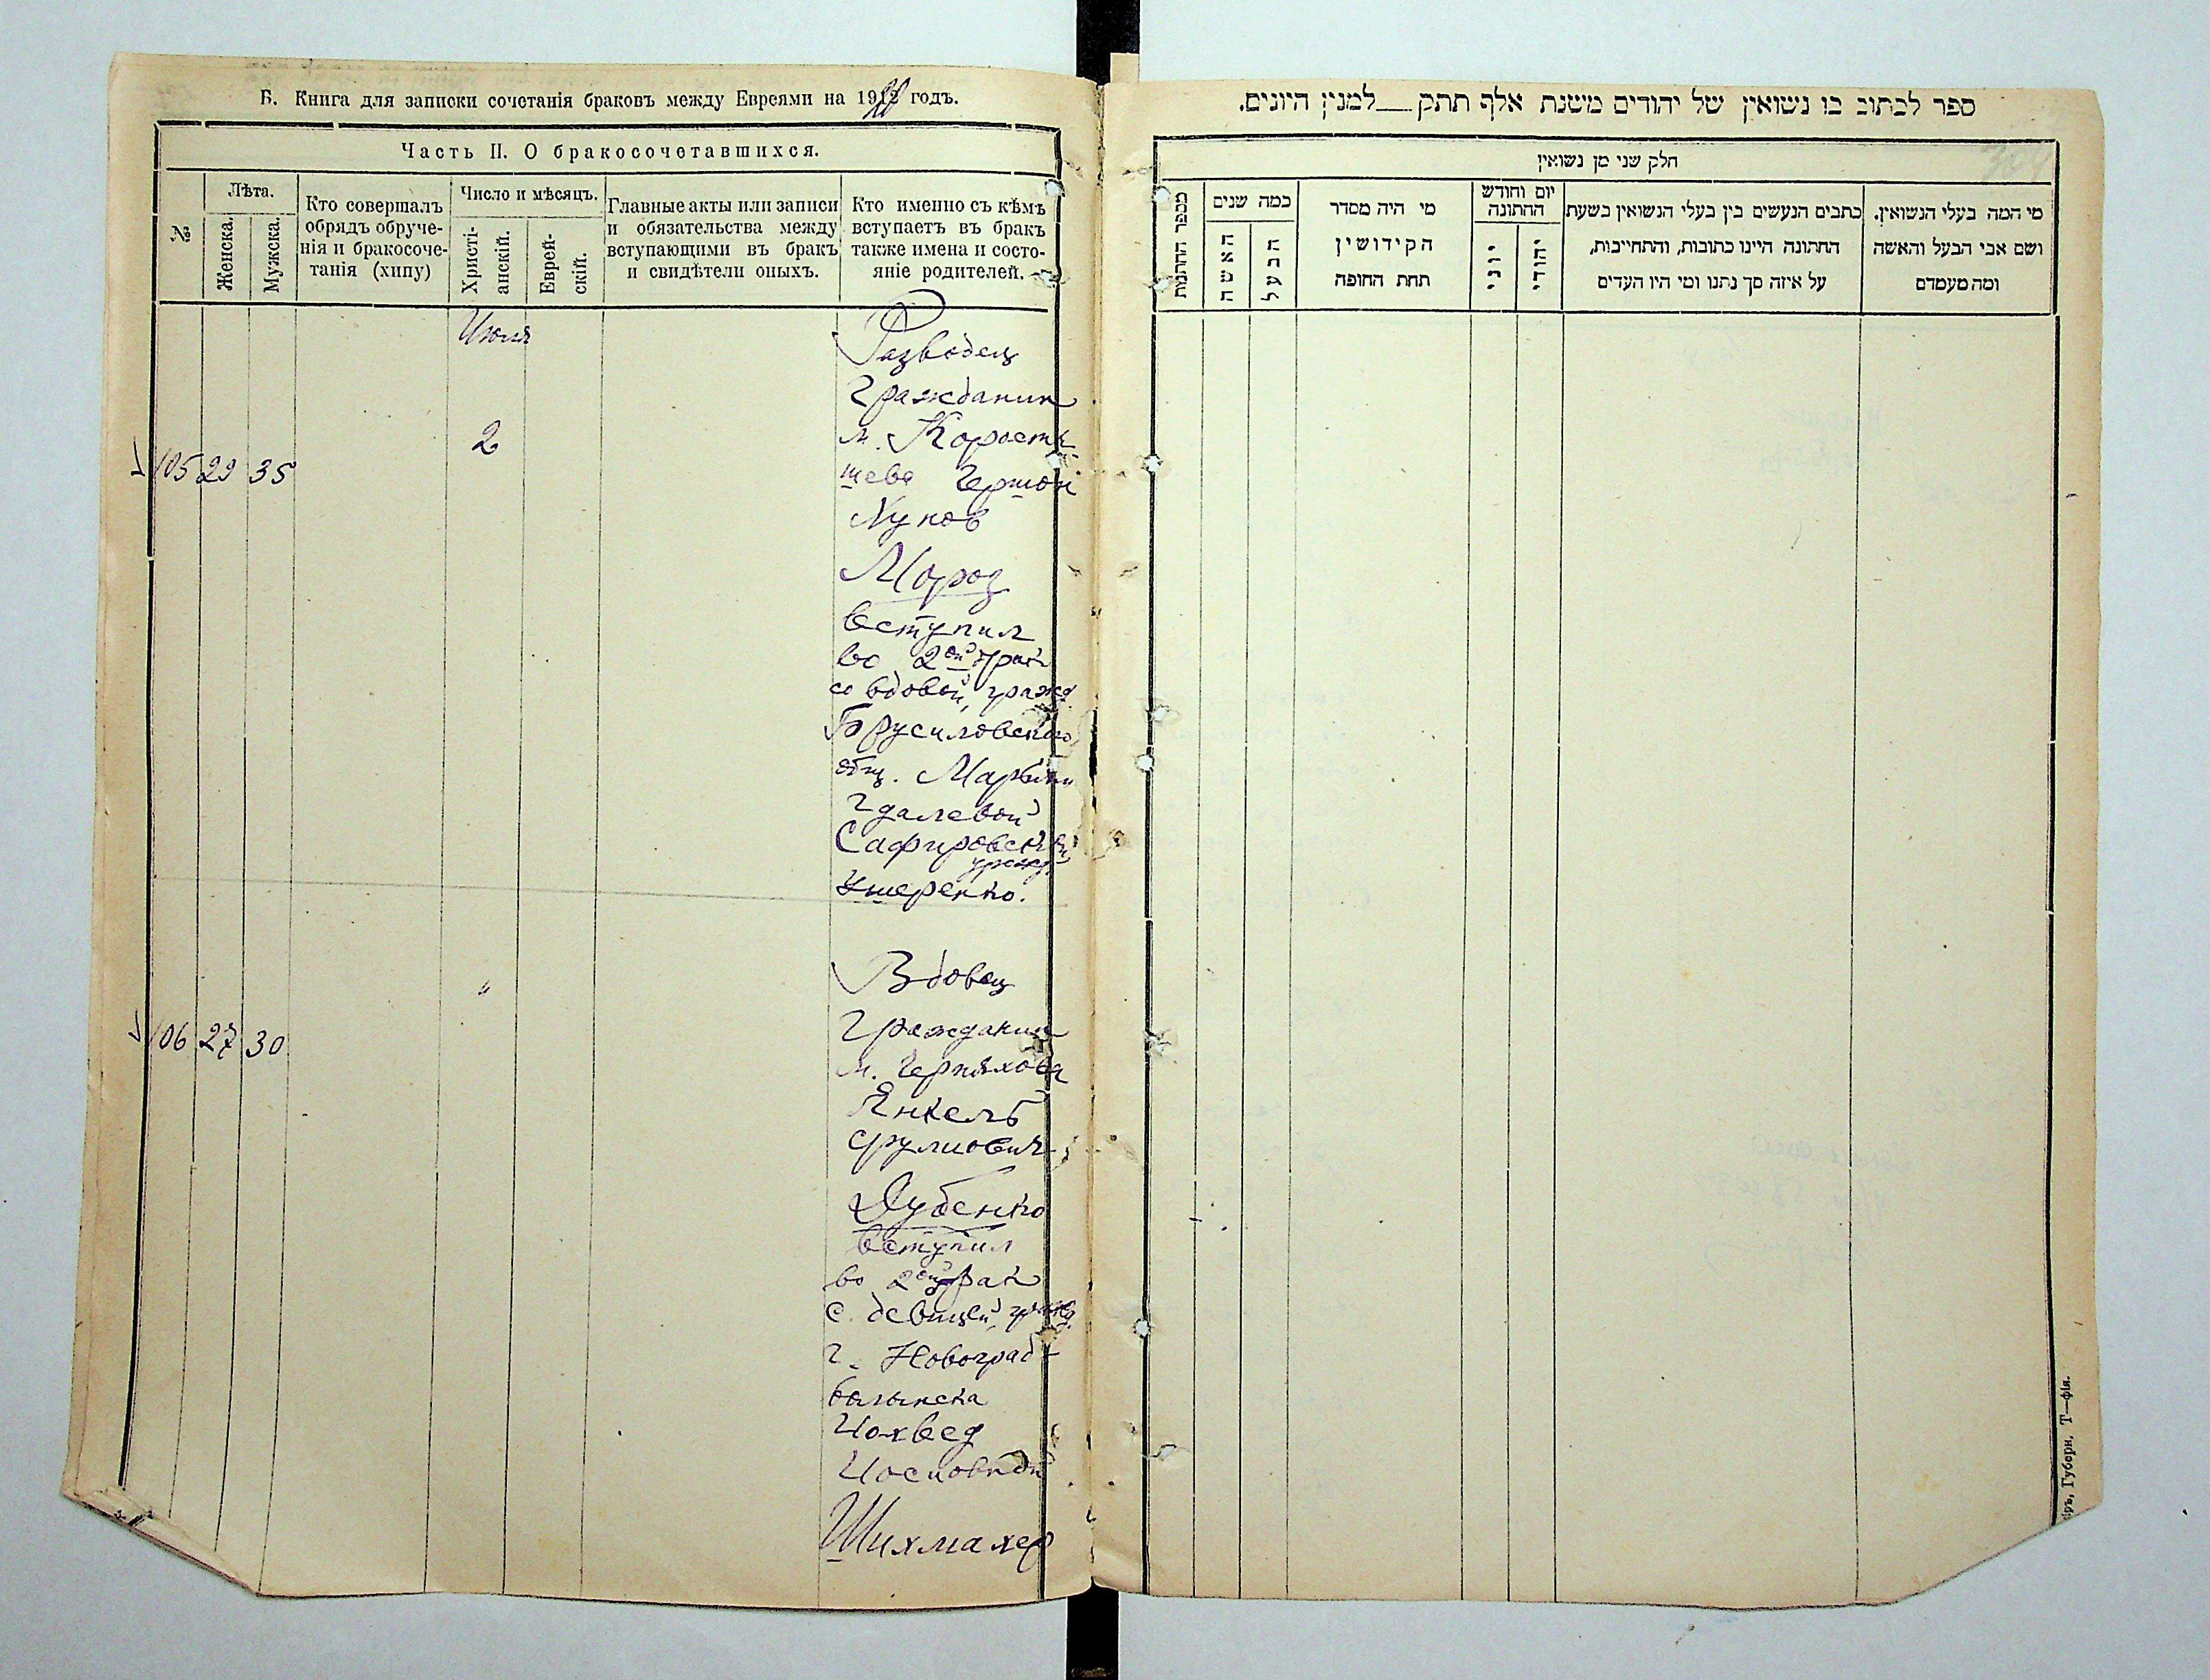 Б. Книга для записки сочетанія браковъ между Евреями на 1920 годъ.
Часть II. О бракосочетавшихся.
№
Лѣта.
Женска.
Мужска.
Кто совершалъ
обрядъ обруче-
нія и бракосоче-
танія (хипу)
Число и мѣсяцъ.
Христі-
анскій.
Еврей-
скій.
Главные акты или записи
и обязательства между
вступающими въ бракъ
и свидѣтели оныхъ.
Кто именно съ кѣмъ
вступаетъ въ бракъ
также имена и состо-
яніе родителей.
Июля
105 29 35
2
Разводец
Гражданин
м. Корости
шева Гершон
Нухов
Мороз
вступил
во 2ой брак
со вдовой, гражд
Брусиловского
общ. Марьями
Гдалевой
Сафировской
урожд.
Ушеренко.
106 27 30
"
Вдовец
Гражданин
м. Черняхова
Янкель
Срулиович
Дубенко
вступил
во 2ой брак
с девицей, гражд.
г. Новоград-
волынска
Иохвед
Иосиовной
Шихмахер
ספר לכתוב בו נשואין של יהודים משנת אלף תתק__למנין היונים.
חלק שני מן נשואין
מספר החתנות
כמה שנים
האשה
הבעל
מי היה מסדר
הקידושין
תחת החופה
יום וחודש
החתונה
יוני
יהודי
כתבים הנעשים בין בעלי הנשואין בשעת
החתונה היינו כתובות, והתחייבות,
על איזה סך נתנו ומי היו העדים
מי המה בעלי הנשואין.
ושם אבי הבעל והאשה
ומה מעמדם
ръ, Губерн. Т—фія.